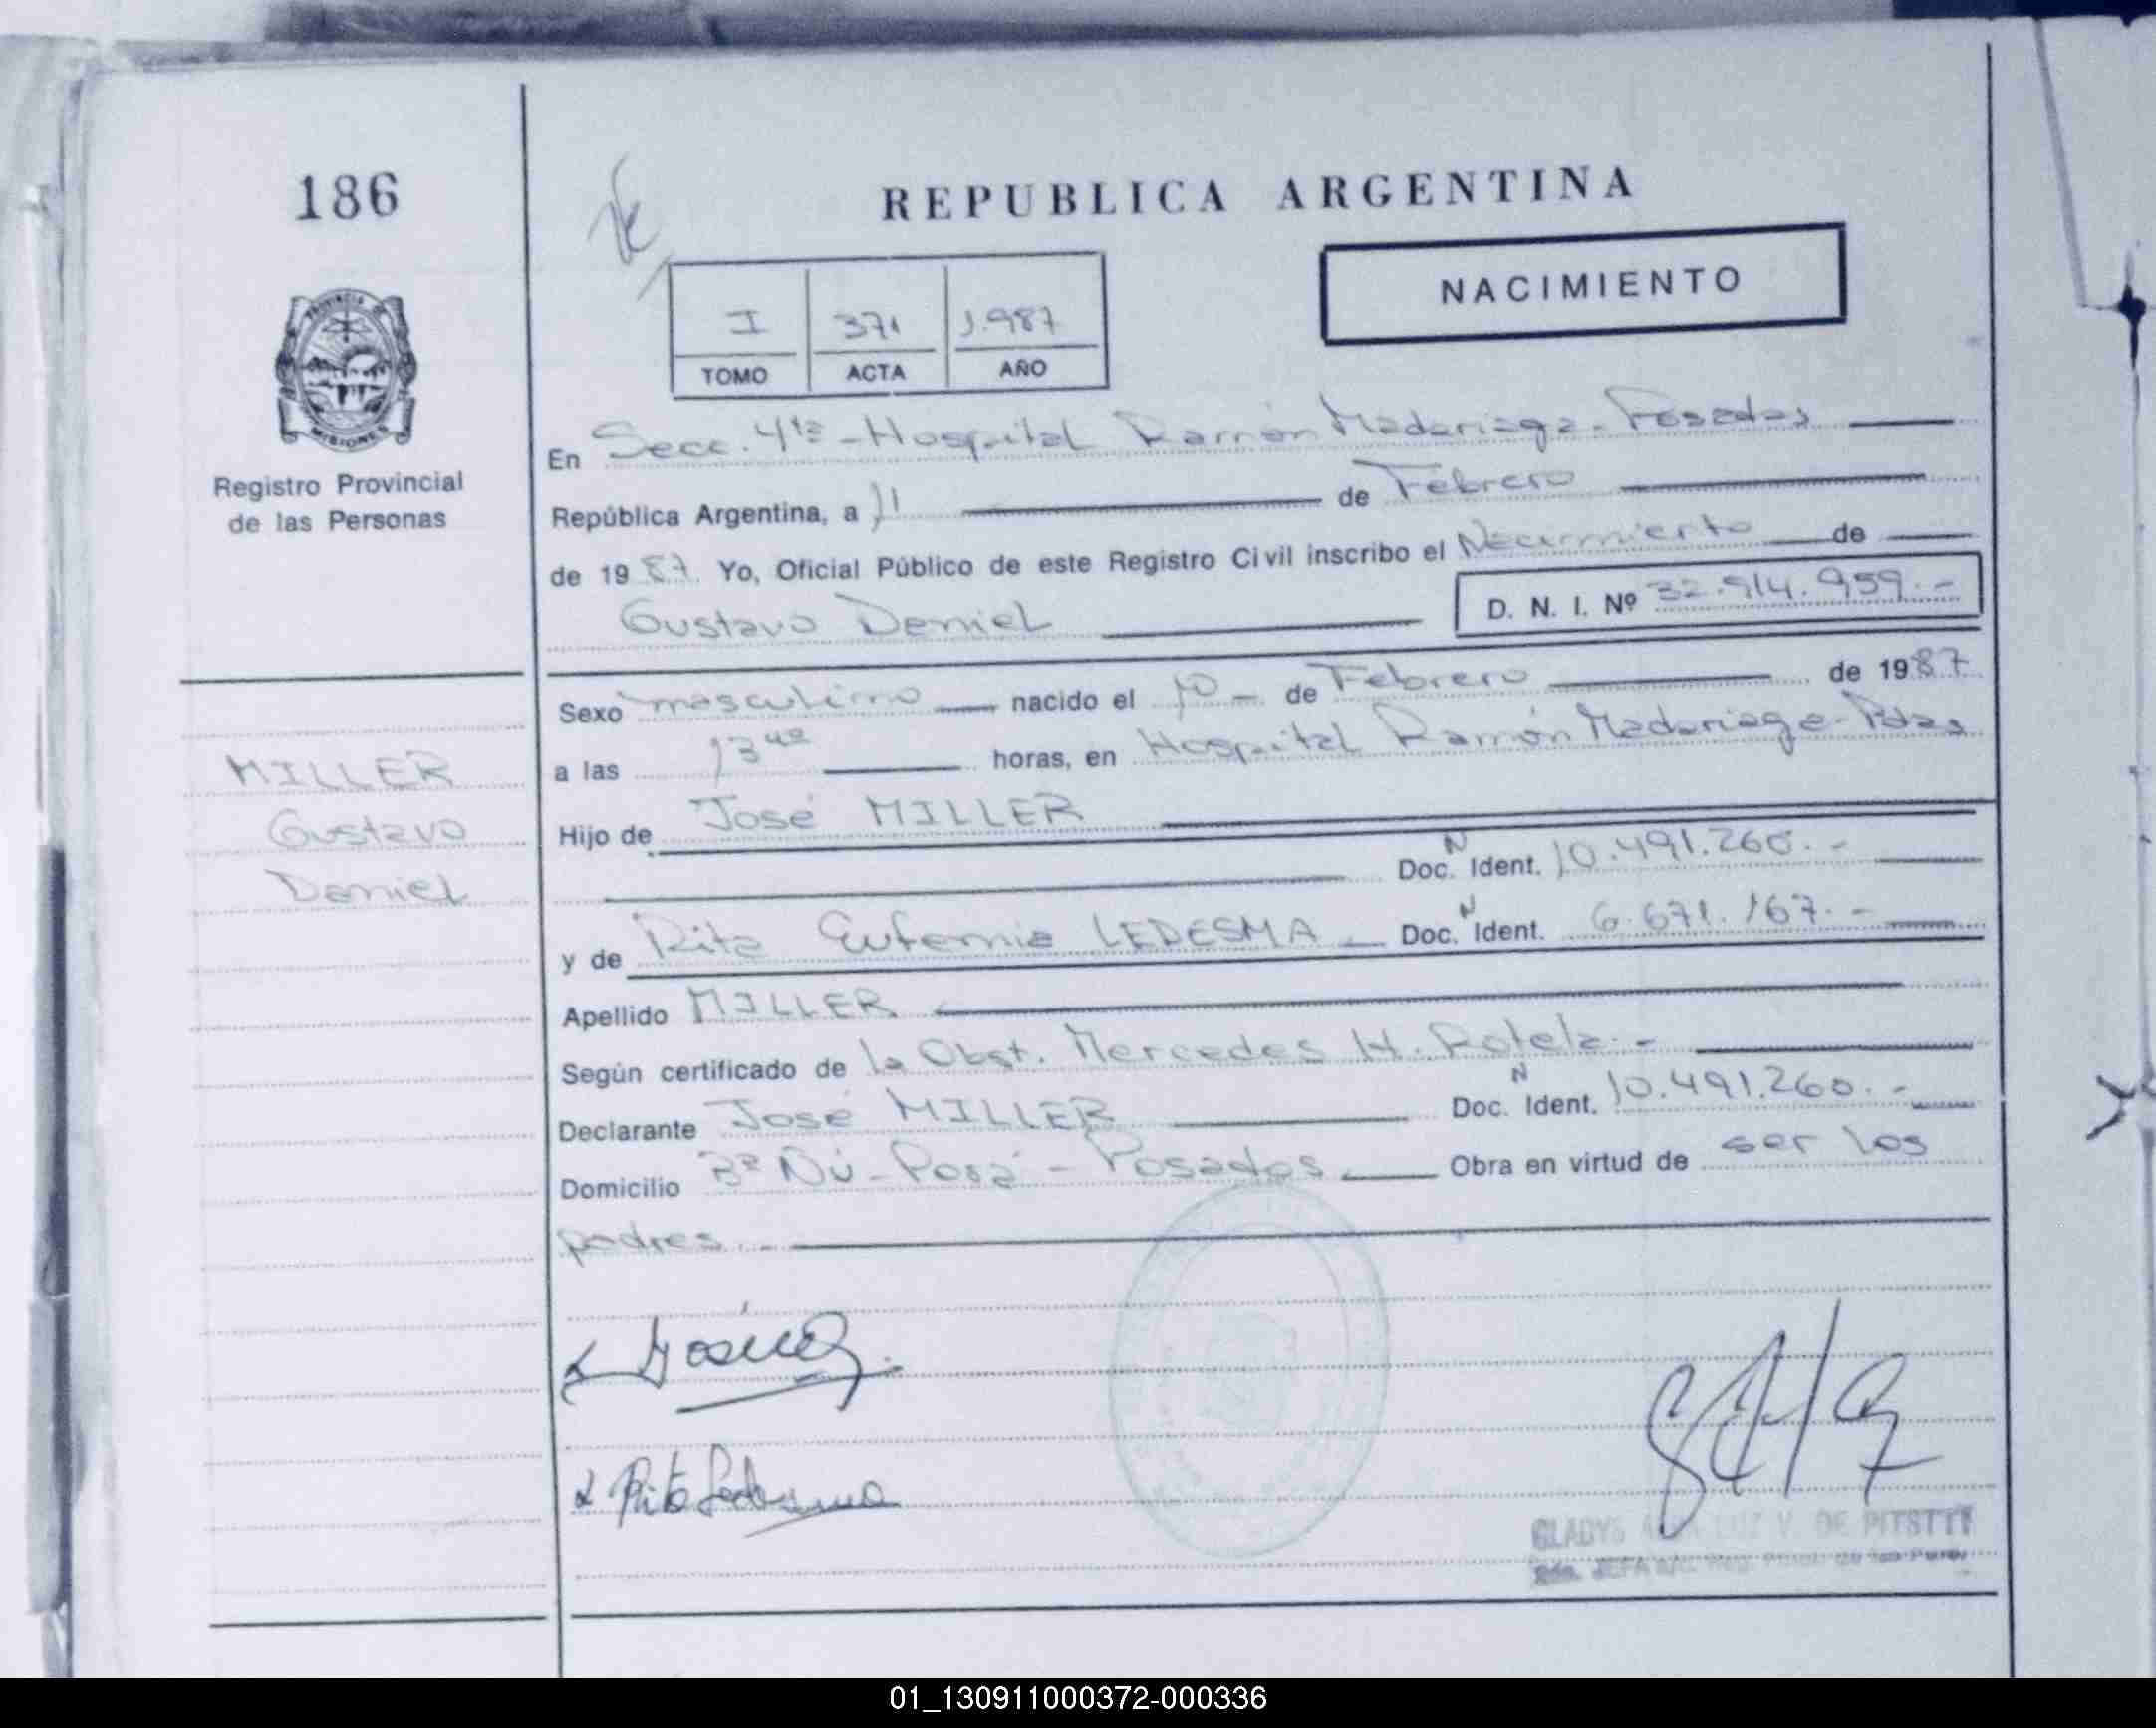 186
REPUBLICA ARGENTINA
NACIMIENTO
I 371 1.987
TOMO ACTA AÑO
PROVINCIA DE
MISIONES
Registro Provincial
de las Personas
En Secc. 4ta - Hospital Ramón Madariaga - Posadas
República Argentina, a 11 de Febrero
de 1987. Yo, Oficial Público de este Registro Civil inscribo el Nacimiento de
Gustavo Daniel D. N. I. Nº 32.914.959.-
Sexo masculino nacido el 10 - de Febrero de 1987
a las 13 40 horas, en Hospital Ramón Madariaga - Pdas
MILLER
Gustavo
Daniel
Hijo de José MILLER
Doc. N Ident. 10.491.260.-
y de Rita Eufemia LEDESMA - Doc. N Ident. 6.671.167.-
Apellido MILLER
Según certificado de la Obst. Mercedes H. Rotela.-
Declarante José MILLER Doc. N Ident. 10.491.260.-
Domicilio Bº Ñú - Porá - Posadas Obra en virtud de ser los
padres.-
Rita Ledesma
GLADYS LUZ V. DE PITSTTI
JEFA
01_130911000372-000336